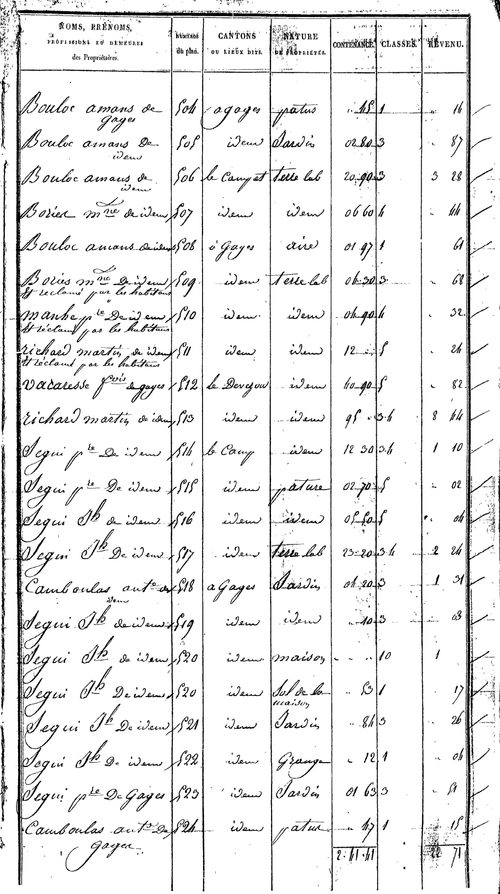 NOMS, PRÉNOMS, PROFESSIONS ET DEMEURES des Propriétaires. NUMÉROS du plan. CANTONS OU LIEUX DITS. NATURE DE PROPRIÉTÉS. CONTENANCE. CLASSES. REVENU.
Bouloc amans de gages 504 a gages patus " 45 1 " 16
Bouloc amans De idem 505 idem Jardin 02 80 3 " 87
Bouloc amans de idem 506 le Camp et terre lab 20 90 3 3 28
Bories m.re de idem 507 idem idem 06 60 4 " 44
Bouloc amans de idem 508 à Gages aire 01 97 1 " 61
Bories m.re De idem 509 idem terre lab 04 30 3 " 68
Et réclamé par les habitans
manhe p.re De idem 510 idem idem 04 90 4 " 32
Et réclamé par les habitans
richard martin de idem 511 idem idem 12 " 5 " 24
Et réclamé par les habitans
vacaresse f.cois de gages 512 le Devezou idem 60 90 5 " 82
richard martin de idem 513 idem idem 95 " 3 4 8 44
Segui p.re De idem 514 le Camp idem 12 30 3 4 1 10
Segui p.re De idem 515 idem pature 02 70 5 " 02
Segui J.h de idem 516 idem idem 05 50 5 " 04
Segui J.h De idem 517 idem terre lab 23 20 3 4 2 24
Camboulas ant.e de idem 518 a Gages Jardin 04 20 3 1 31
Segui J.h de idem 519 idem idem " 10 3 " 03
Segui J.h de idem 520 idem maison " " 10 1 "
Segui J.h De idem 520 idem Sol de la maison " 53 1 " 17
Segui J.h De idem 521 idem Jardin " 84 3 " 26
Segui J.h De idem 522 idem Grange " 12 1 " 04
Segui p.re De Gages 523 idem Jardin 01 63 3 " 51
Camboulas ant.e De gages 524 idem patus " 47 1 " 15
2 41 41 22 71